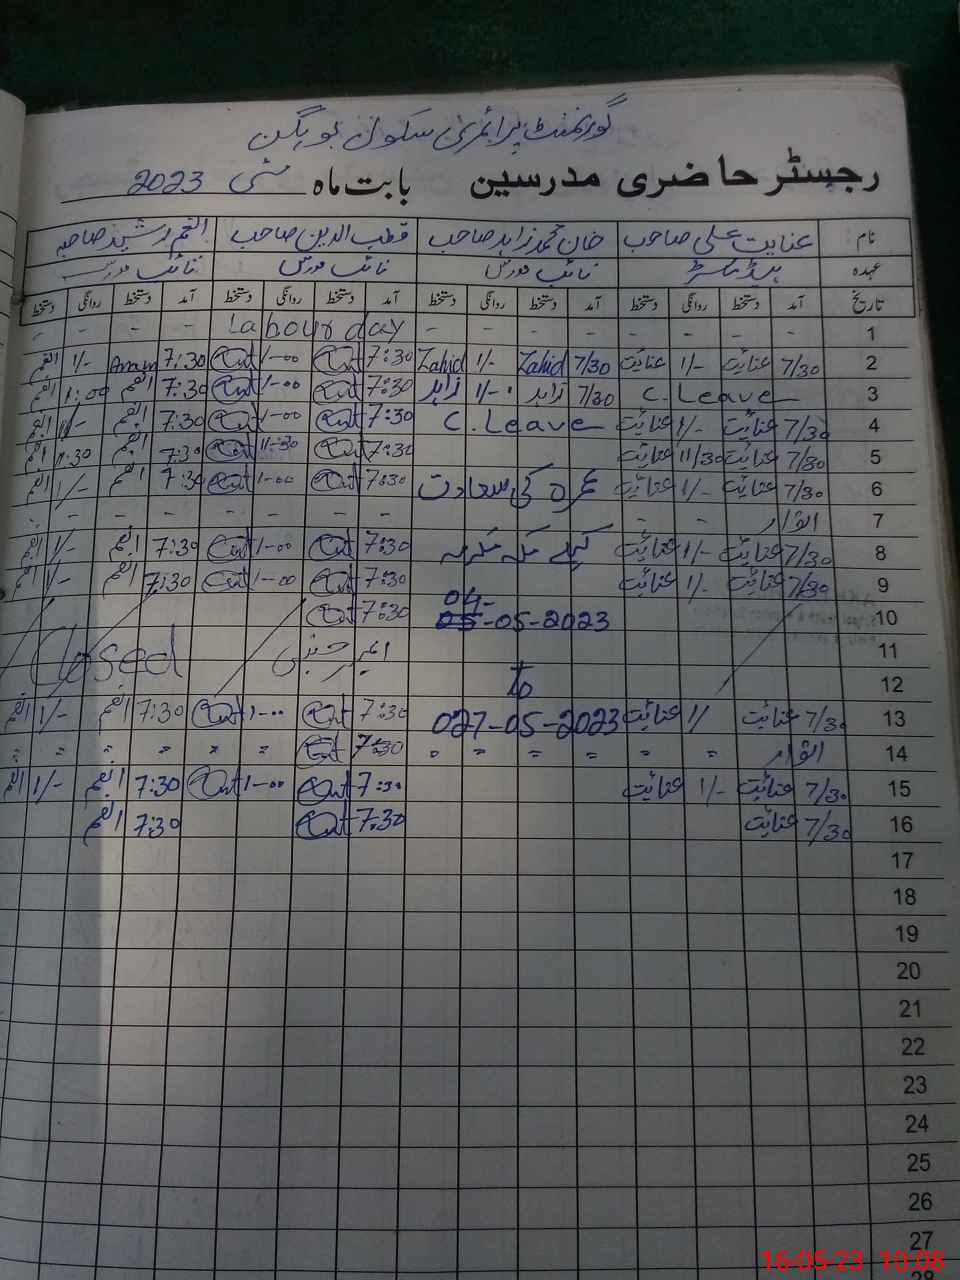 گورنمنٹ پرائمری سکول
رجسٹر حاضری مدرسین بابت ماہ مئی 2023
نام عنایت علی صاحب خان محمد زاہد صاحب قطب الدین صاحب
عہدہ ہیڈ ماسٹر نائب مدرس نائب مدرس نائب مدرس
تاریخ آمد دستخط روانگی دستخط آمد دستخط روانگی دستخط آمد دستخط روانگی دستخط آمد دستخط روانگی دستخط
1 - - - - - - Labour day - - - -
2 7/30 عنایت 1/- عنایت 7/30 Zahid 1/- Zahid 7:30 1-00 7:30 Anam 1/- انعم
3 C. Leave 7/30 زاہد 1/- زاہد 7:30 1-00 7:30 انعم 1:00 انعم
4 7/30 عنایت 1/- عنایت C. Leave 7:30 1-00 7:30 انعم 1/- انعم
5 7/30 عنایت 11/30 عنایت 7:30 11:30 7:30 انعم 11:30 انعم
6 7/30 عنایت 1/- عنایت عمرہ کی سعادت 7:30 1-00 7:30 انعم 1/- انعم
7 اتوار - - - - - - - -
8 7/30 عنایت 1/- عنایت کیلے مکہ مکرمہ 7:30 1-00 7:30 انعم 1/- انعم
9 7/30 عنایت 1/- عنایت 7:30 1-00 7:30 انعم 1/- انعم
04-
10 05-05-2023 7:30
11 ایمرجنسی Closed
12 to
13 7/30 عنایت 1/ عنایت 027-05-2023 7:30 1-00 7:30 انعم 1/- انعم
14 اتوار " " " " " 7:30 " " " " " "
15 7/30 عنایت 1/- عنایت 7:30 1-00 7:30 انعم 1/- انعم
16 7/30 عنایت 7:30 7:30 انعم
17
18
19
20
21
22
23
24
25
26
27
28
16-05-23 10:08